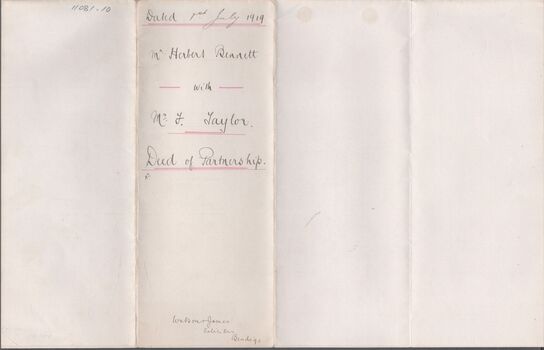 11081-10
Dated 1st July 1919
Mr Herbert Bennett
with
Mr. F. Taylor.
Deed of Partnership.
Watson & James
Solicitors
Bendigo